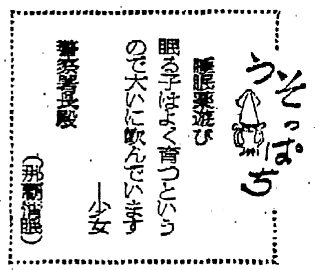 うそっぱち
睡眠薬遊び
眠る子はよく育つという
ので大いに飲んでいます
――少女
警察署長殿
(那覇・惰眠)